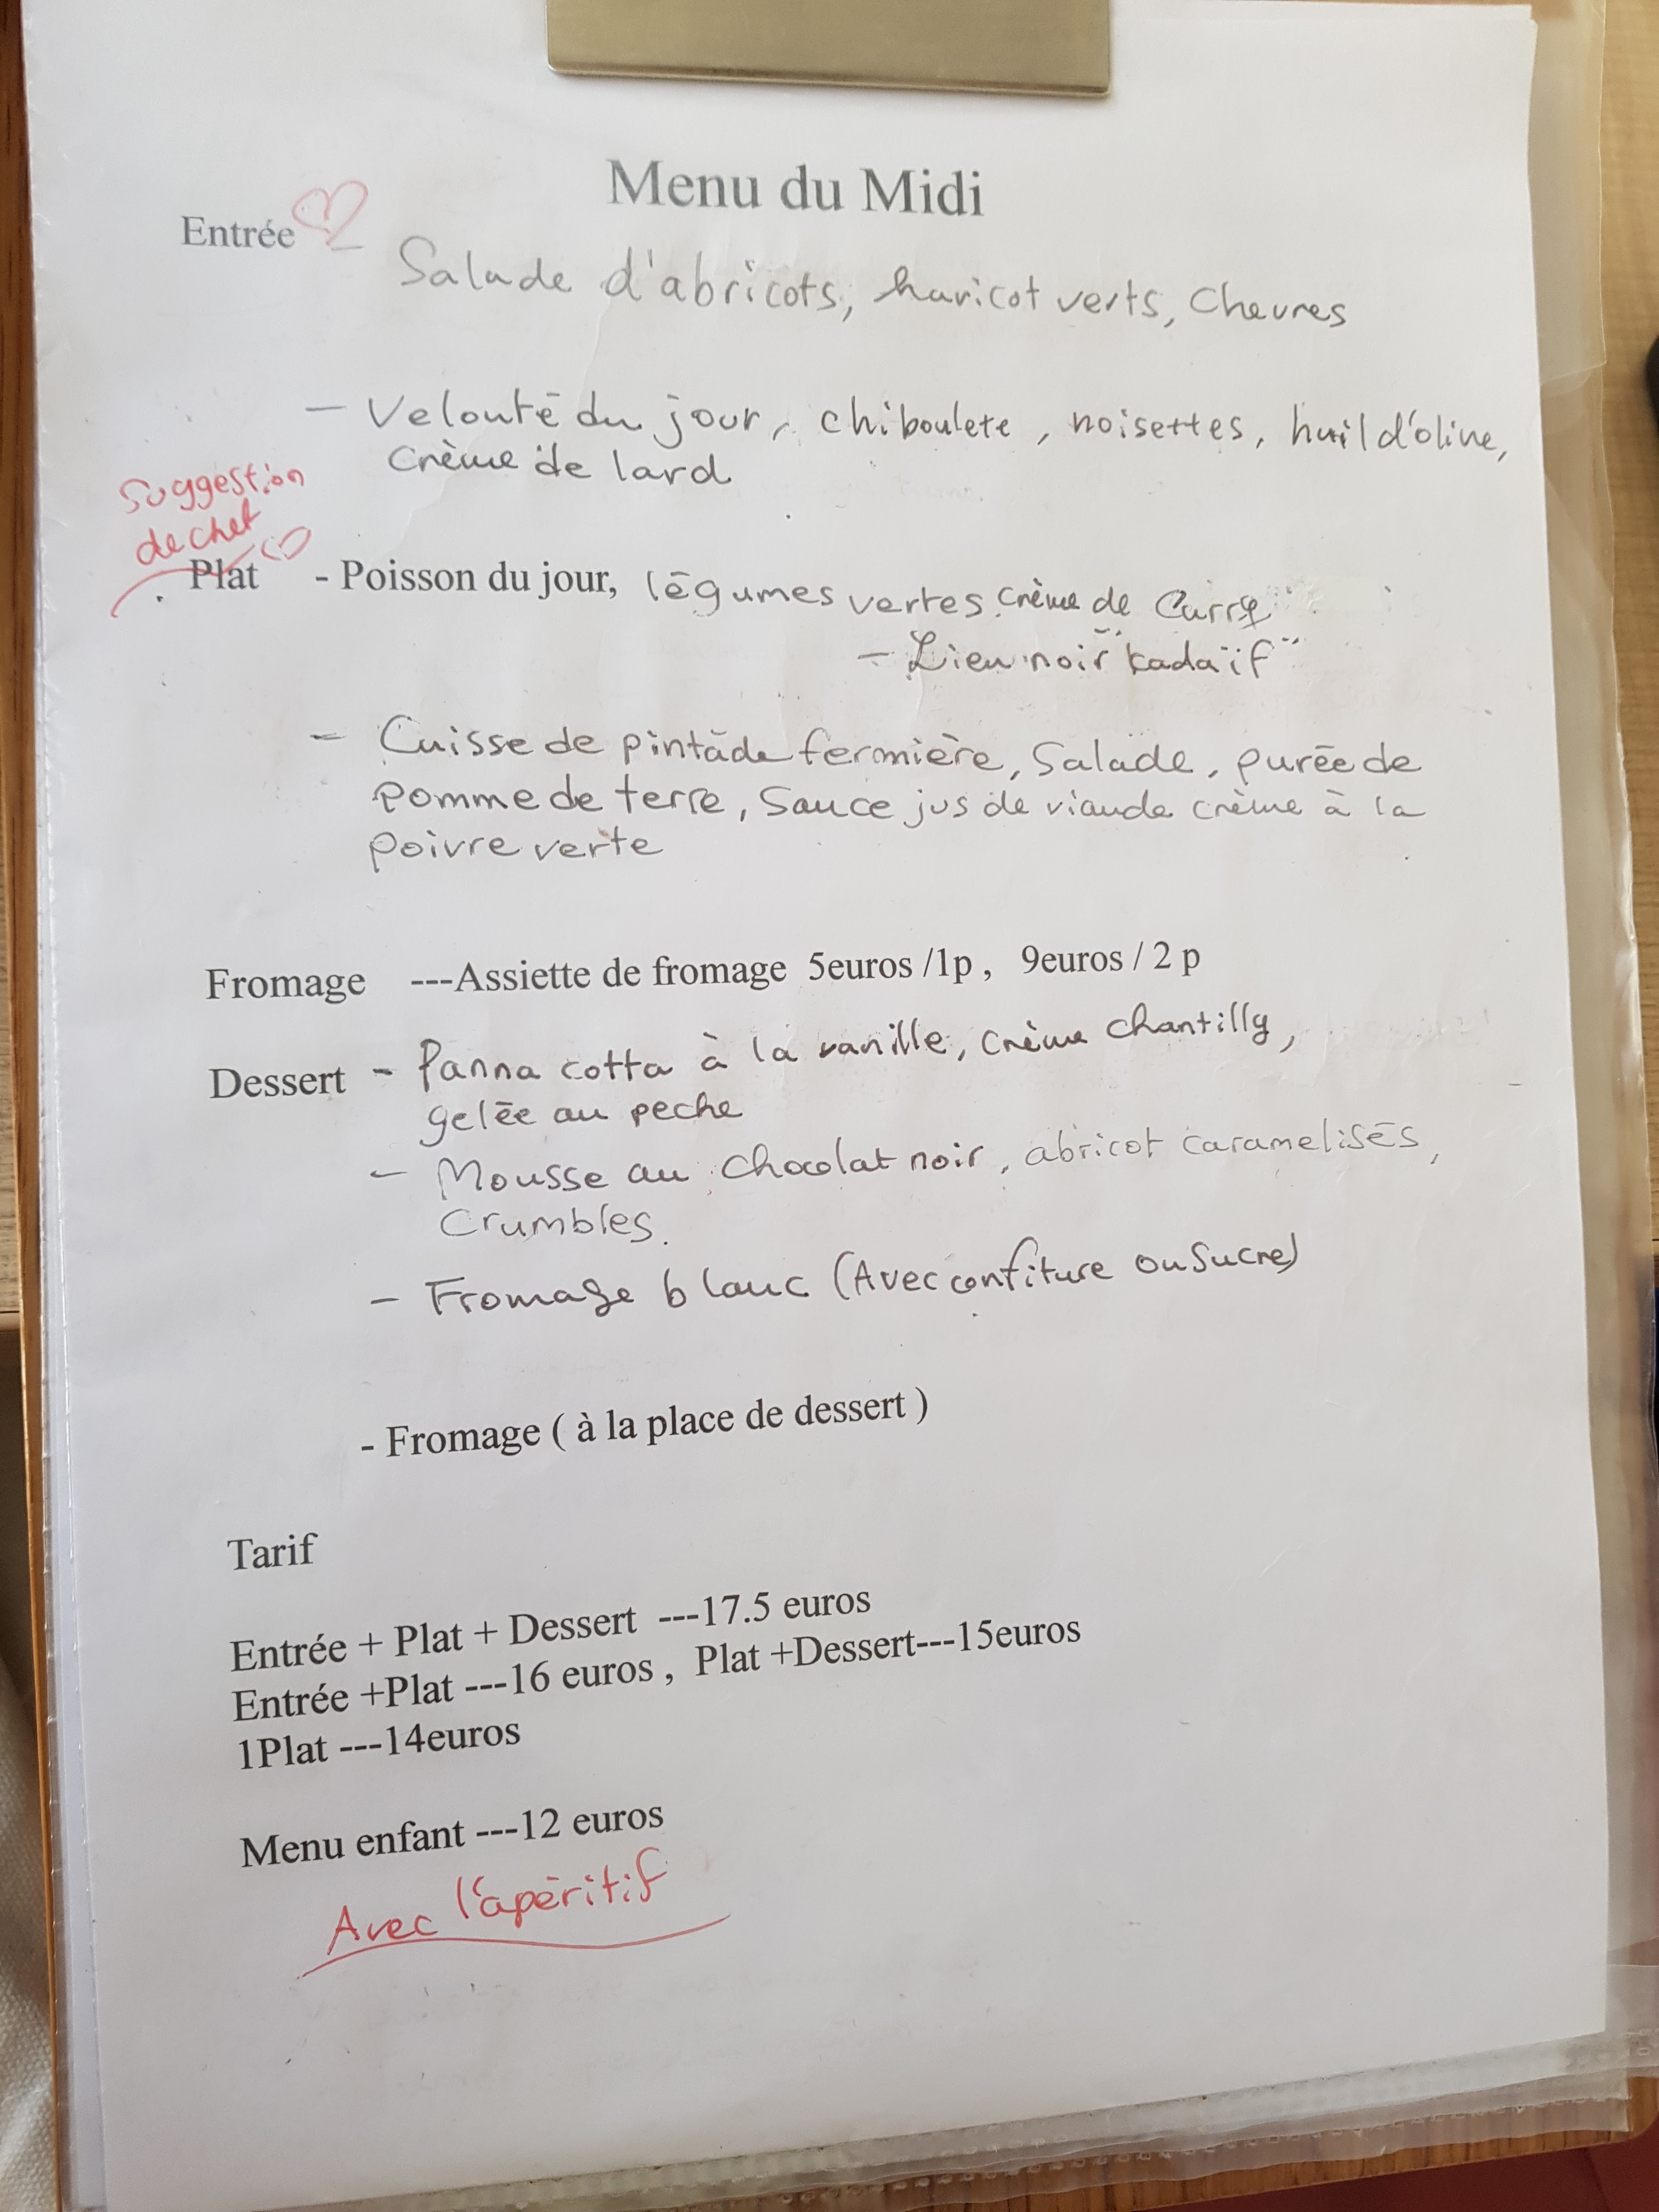 Menu du Midi
Entrée
Salade d'abricots, haricot verts, Chevres
- Velouté du jour, chiboulete, noisettes, huil d'olive,
crème de lard
Suggestion
de chef
Plat - Poisson du jour, légumes vertes crème de Curry
- Lieu noir "kadaïf"
- Cuisse de pintade fermière, Salade, purée de
pomme de terre, Sauce jus de viande crème à la
poivre verte
Fromage ---Assiette de fromage 5euros /1p , 9euros / 2 p
Dessert - Panna cotta à la vanille, crème chantilly,
gelée au peche
- Mousse au chocolat noir, abricot caramelisés,
Crumbles.
- Fromage blanc (Avec confiture ou Sucre)
- Fromage ( à la place de dessert )
Tarif
Entrée + Plat + Dessert ---17.5 euros
Entrée +Plat ---16 euros , Plat +Dessert---15euros
1Plat ---14euros
Menu enfant ---12 euros
Avec l'apéritif